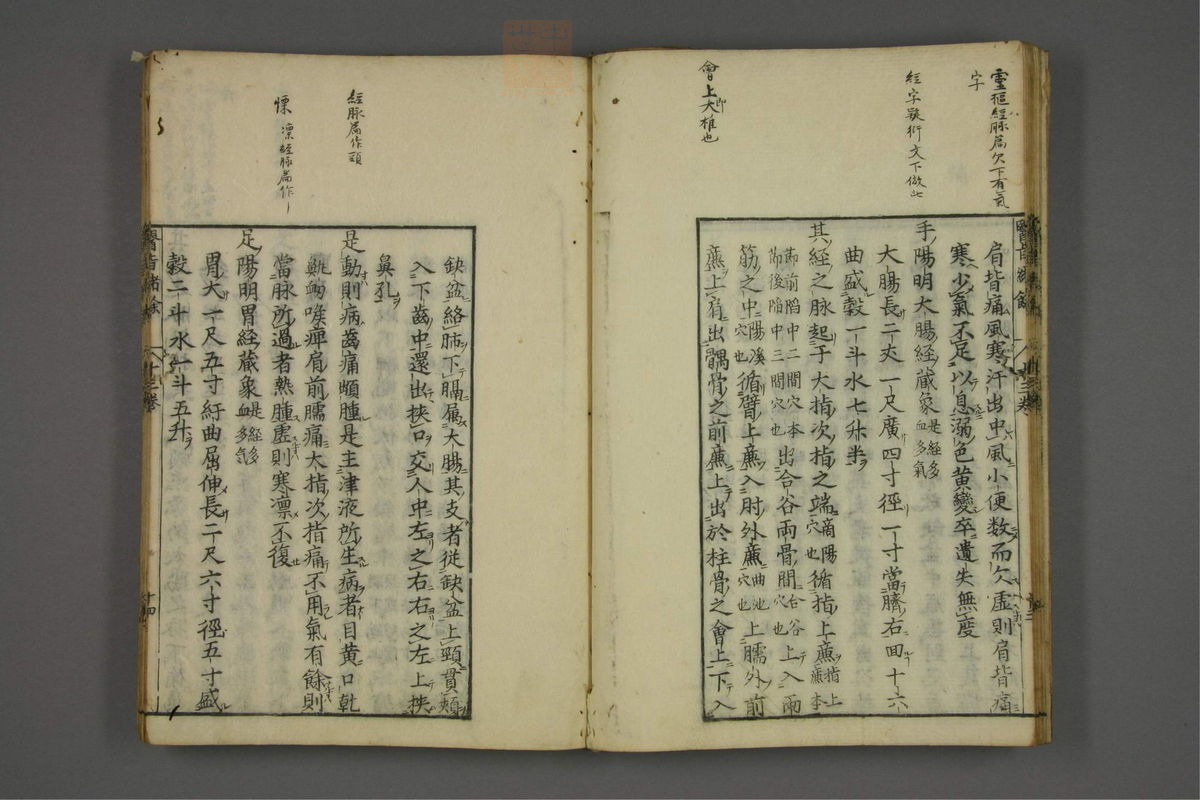 靈樞經脉篇欠下有氣
字
經字疑衍文下倣此
會上即大椎也
肩背痛風寒汗出中風小便数而欠虚則肩背痛
寒少氣不足以息溺色黄變卒遺失無度
手陽明大腸經蔵象是經多血多氣
大腸長二丈一尺廣四寸徑一寸當臍右囬十六
曲盛穀一斗水七升半
其經之脉起于大指次指之端商陽穴也循指上㢘指上㢘本
節前陷中二間穴本節後陷中三間穴也出合谷兩骨間合谷穴也上入兩
筋之中陽溪穴也循臂上㢘入肘外㢘曲池穴也上臑外前
㢘上肩出髃骨之前㢘上出於柱骨之會上下入
醫背緒餘
經脉篇作頸
慄凛經脉篇作
缺盆絡肺下膈属大腸其支者従缺盆上頸貫頬
入下齒中還出挾口交人中左之右右之左上挾
鼻孔
是動則病齒痛䪼腫是主津液所生病者目黄口乾
鼽衂喉痺肩前臑痛大指次指痛不用氣有餘則
當脉所過者熱腫虚則寒凛不復
足陽明胃經蔵象是經多血多氣
胃大一尺五寸紆曲屈伸長二尺六寸徑五寸盛
穀二斗水一斗五升
十四